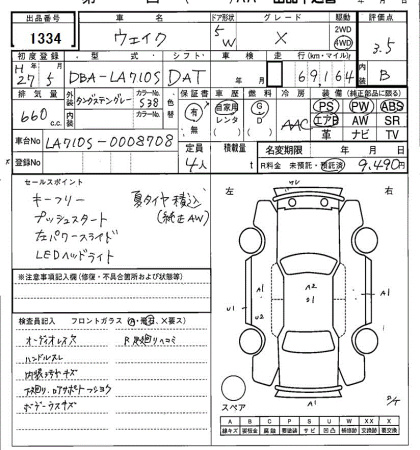 出品番号 車名 ドア形状 グレード 駆動 評価点
1334 ウェイク 5 W X 2WD 4WD 3.5
初度登録 型式 シフト 車検 走行(km・マイル) 内装
H27 5 DBA-LA710S DAT 年 月 69,164 B
排気量 外装 カラーNo. 色替 保証書 車歴 燃料 冷房 装備(純正部品に限る)
660 c.c. タンクステングレー S38 有 無 自家用 レンタ G D AAC PS PW ABS
エアB AW SR
革 ナビ TV
車台No LA710S-0008708 定員 積載量 名変期限 年 月 日
登録No 4人 t R料金 未預託・預託済 9,490円
セールスポイント
キーフリー 夏タイヤ積込
プッシュスタート (純正AW)
左パワースライド
LEDヘッドライト
左 右
※注意事項記入欄(修復・不具合箇所および状態等)
検査員記入 フロントガラス(A・飛石、X要ス)
オーディオレス穴 R足廻りヘコミ
ハンドルスレ
内装3ヶキズ
下廻り、ロアサポートフショク
ボデーウスキズ
A1
A2
S1
U1
U2
A1
A1
スペア
A B C P S U W X XX X
線キズ 要板金 腐蝕 要塗装 サビ 凹凸 補修跡 要交換 交換跡 要交換